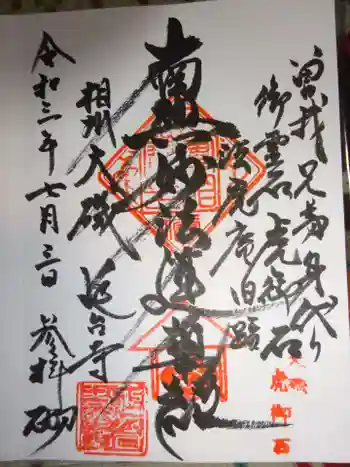 曽我兄弟身代り
御霊石虎御石
法虎庵旧跡
南無妙法蓮華経
相州大磯 延台寺
令和三年七月三日 参拝
虎御石